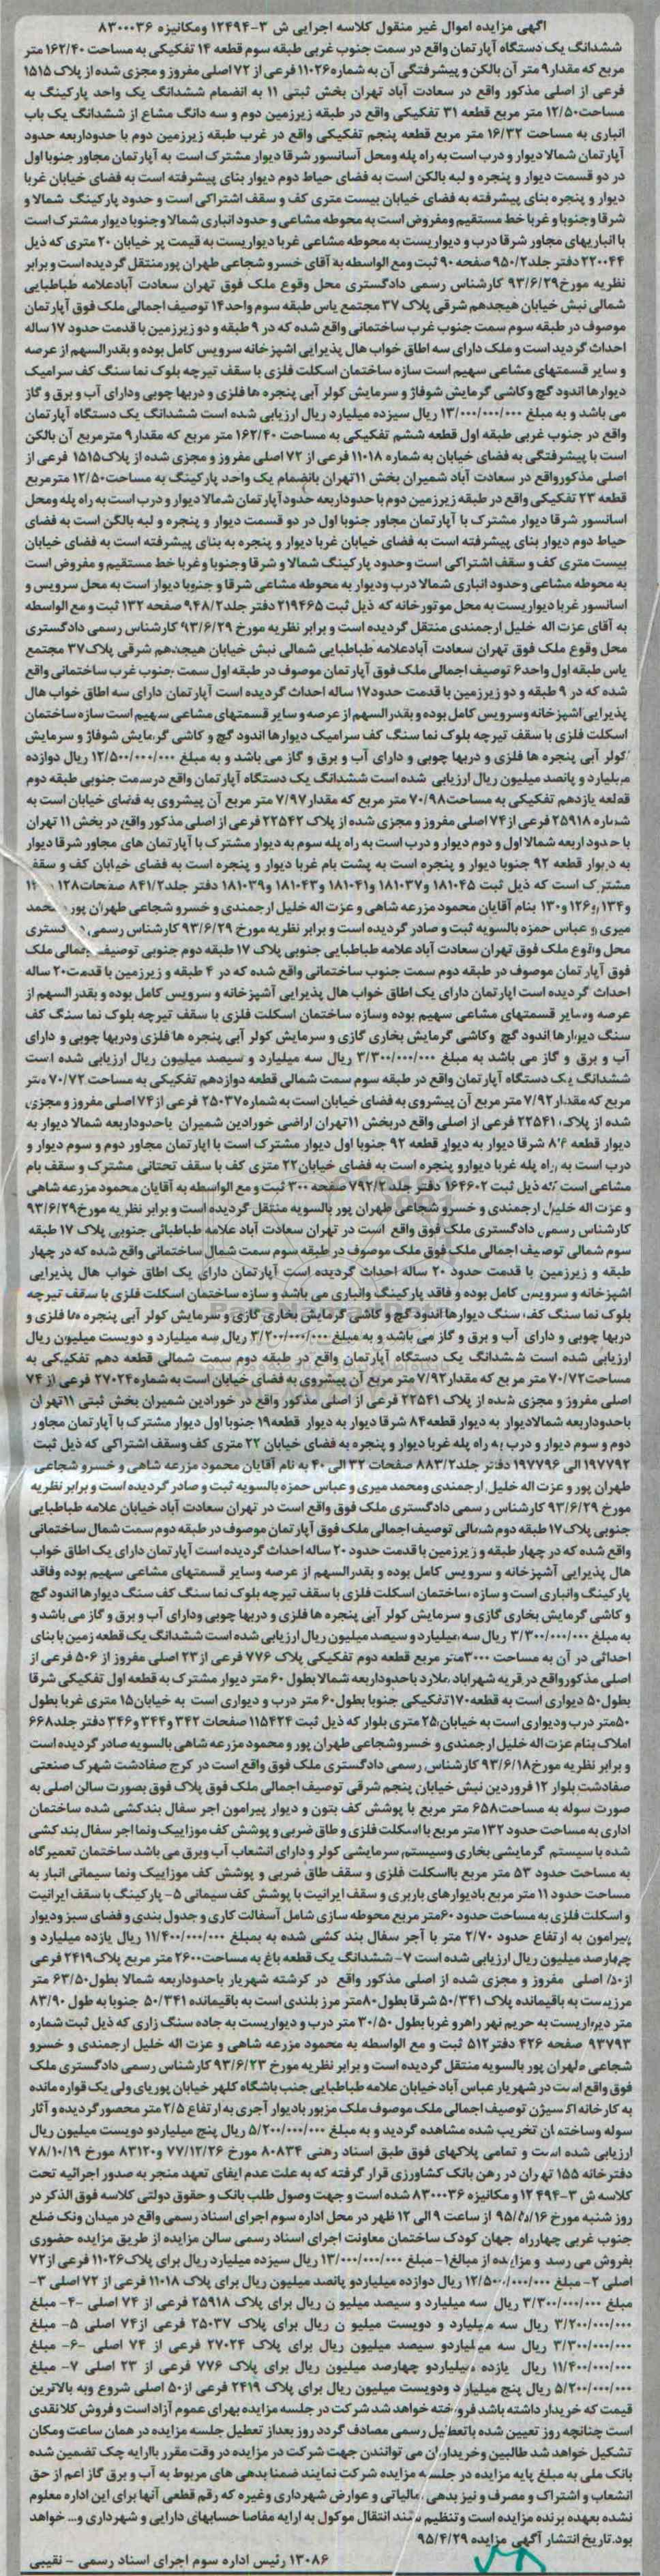 آگهی مزایده اموال غیر منقول کلاسه اجرایی ش ۳-۱۲۴۹۴ ومکانیزه ۸۳۰۰۰۳۶
ششدانگ یک دستگاه آپارتمان واقع در سمت جنوب غربی طبقه سوم قطعه ۱۴ تفکیکی به مساحت ۱۶۲/۴۰ متر
مربع که مقدار ۹ متر آن بالکن و پیشرفتگی آن به شماره ۱۱۰۲۶ فرعی از ۷۲ اصلی مفروز و مجزی شده از پلاک ۱۵۱۵
فرعی از اصلی مذکور واقع در سعادت آباد تهران بخش ثبتی ۱۱ به انضمام ششدانگ یک واحد پارکینگ به
مساحت ۱۲/۵۰ متر مربع قطعه ۳۱ تفکیکی واقع در طبقه زیرزمین دوم و سه دانگ مشاع از ششدانگ یک باب
انباری به مساحت ۱۶/۳۲ متر مربع قطعه پنجم تفکیکی واقع در غرب طبقه زیرزمین دوم با حدوداربعه حدود
آپارتمان شمالا دیوار و درب است به راه پله ومحل آسانسور شرقا دیوار مشترک است به آپارتمان مجاور جنوبا اول
در دو قسمت دیوار و پنجره و لبه بالکن است به فضای حیاط دوم دیوار بنای پیشرفته است به فضای خیابان غربا
دیوار و پنجره بنای پیشرفته به فضای خیابان بیست متری کف و سقف اشتراکی است و حدود پارکینگ شمالا و
شرقا وجنوبا و غربا خط مستقیم ومفروض است به محوطه مشاعی و حدود انباری شمالا وجنوبا دیوار مشترک است
با انباریهای مجاور شرقا درب و دیواریست به محوطه مشاعی غربا دیواریست به قیمت پر خیابان ۲۰ متری که ذیل
۲۲۰۰۴۴ دفتر جلد ۹۵۰/۲ صفحه ۹۰ ثبت ومع الواسطه به آقای خسرو شجاعی طهران پور منتقل گردیده است و برابر
نظریه مورخ ۹۳/۶/۲۹ کارشناس رسمی دادگستری محل وقوع ملک فوق تهران سعادت آباد علامه طباطبایی
شمالی نبش خیابان هیجدهم شرقی پلاک ۳۷ مجتمع یاس طبقه سوم واحد ۱۴ توصیف اجمالی ملک فوق آپارتمان
موصوف در طبقه سوم سمت جنوب غرب ساختمانی واقع شده که در ۹ طبقه و دو زیرزمین با قدمت حدود ۱۷ ساله
احداث گردید است و ملک دارای سه اطاق خواب هال پذیرایی اشپزخانه سرویس کامل بوده و بقدرالسهم از عرصه
و سایر قسمتهای مشاعی سهیم است سازه ساختمان اسکلت فلزی با سقف تیرچه بلوک نما سنگ کف سرامیک
دیوارها اندود گچ وکاشی گرمایش شوفاژ و سرمایش کولر آبی پنجره ها فلزی و دربها چوبی ودارای آب و برق و گاز
می باشد و به مبلغ ۱۳/۰۰۰/۰۰۰/۰۰۰ ریال سیزده میلیارد ریال ارزیابی شده است ششدانگ یک دستگاه آپارتمان
واقع در جنوب غربی طبقه اول قطعه ششم تفکیکی به مساحت ۱۶۲/۴۰ متر مربع که مقدار ۹ مترمربع آن بالکن
است با پیشرفتگی به فضای خیابان به شماره ۱۱۰۱۸ فرعی از ۷۲ اصلی مفروز و مجزی شده از پلاک ۱۵۱۵ فرعی از
اصلی مذکور واقع در سعادت آباد شمیران بخش ۱۱ تهران بانضمام یک واحد پارکینگ به مساحت ۱۲/۵۰ مترمربع
قطعه ۲۳ تفکیکی واقع در طبقه زیرزمین دوم با حدوداربعه حدود آپارتمان شمالا دیوار و درب است به راه پله ومحل
اسانسور شرقا دیوار مشترک با آپارتمان مجاور جنوبا اول در دو قسمت دیوار و پنجره و لبه بالکن است به فضای
حیاط دوم دیوار بنای پیشرفته است به فضای خیابان غربا دیوار و پنجره به بنای پیشرفته است به فضای خیابان
بیست متری کف و سقف اشتراکی است وحدود پارکینگ شمالا و شرقا وجنوبا و غربا خط مستقیم و مفروض است
به محوطه مشاعی وحدود انباری شمالا درب ودیوار به محوطه مشاعی شرقا و جنوبا دیوار است به محل سرویس و
اسانسور غربا دیواریست به محل موتورخانه که ذیل ثبت ۲۱۹۴۶۵ دفتر جلد ۹۴۸/۲ صفحه ۱۳۲ ثبت و مع الواسطه
به آقای عزت اله خلیل ارجمندی منتقل گردیده است و برابر نظریه مورخ ۹۳/۶/۲۹ کارشناس رسمی دادگستری
محل وقوع ملک فوق تهران سعادت آباد علامه طباطبایی شمالی نبش خیابان هیجدهم شرقی پلاک ۳۷ مجتمع
یاس طبقه اول واحد ۶ توصیف اجمالی ملک فوق آپارتمان موصوف در طبقه اول سمت جنوب غرب ساختمانی واقع
شده که در ۹ طبقه و دو زیرزمین با قدمت حدود ۱۷ ساله احداث گردیده است آپارتمان دارای سه اطاق خواب هال
پذیرایی اشپزخانه وسرویس کامل بوده و بقدرالسهم از عرصه و سایر قسمتهای مشاعی سهیم است سازه ساختمان
اسکلت فلزی با سقف تیرچه بلوک نما سنگ کف سرامیک دیوارها اندود گچ و کاشی گرمایش شوفاژ و سرمایش
کولر آبی پنجره ها فلزی و دربها چوبی و دارای آب و برق و گاز می باشد و به مبلغ ۱۲/۵۰۰/۰۰۰/۰۰۰ ریال دوازده
میلیارد و پانصد میلیون ریال ارزیابی شده است ششدانگ یک دستگاه آپارتمان واقع درسمت جنوبی طبقه دوم
قطعه یازدهم تفکیکی به مساحت ۷۰/۹۸ متر مربع که مقدار ۷/۹۷ متر مربع آن پیشروی به فضای خیابان است به
شماره ۲۵۹۱۸ فرعی از ۷۴ اصلی مفروز و مجزی شده از پلاک ۲۲۵۴۲ فرعی از اصلی مذکور واقع در بخش ۱۱ تهران
با حدود اربعه شمالا اول و دوم دیوار و درب است به راه پله سوم به دیوار مشترک با آپارتمان های مجاور شرقا دیوار
به دیوار قطعه ۹۲ جنوبا دیوار و پنجره است به پشت بام غربا دیوار و پنجره است به فضای خیابان کف و سقف
مشترک است که ذیل ثبت ۱۸۱۰۴۵ و ۱۸۱۰۳۷ و ۱۸۱۰۴۱ و ۱۸۱۰۴۳ و ۱۸۱۰۳۹ دفتر جلد ۸۴۱/۲ صفحات ۱۲۸
و ۱۳۴ و ۱۲۶ و ۱۳۰ بنام آقایان محمود مزرعه شاهی و عزت اله خلیل ارجمندی و خسرو شجاعی طهران پور و محمد
میری و عباس حمزه بالسویه ثبت و صادر گردیده است و برابر نظریه مورخ ۹۳/۶/۲۹ کارشناس رسمی دادگستری
محل وقوع ملک فوق تهران سعادت آباد علامه طباطبایی جنوبی پلاک ۱۷ طبقه دوم جنوبی توصیف اجمالی ملک
فوق آپارتمان موصوف در طبقه دوم سمت جنوب ساختمانی واقع شده که در ۴ طبقه و زیرزمین با قدمت ۲۰ ساله
احداث گردیده است اپارتمان دارای یک اطاق خواب هال پذیرایی آشپزخانه و سرویس کامل بوده و بقدرالسهم از
عرصه وسایر قسمتهای مشاعی سهیم بوده وسازه ساختمان اسکلت فلزی با سقف تیرچه بلوک نما سنگ کف
سنگ دیوارها اندود گچ وکاشی گرمایش بخاری گازی و سرمایش کولر آبی پنجره ها فلزی ودربها چوبی و دارای
آب و برق و گاز می باشد به مبلغ ۳/۳۰۰/۰۰۰/۰۰۰ ریال سه میلیارد و سیصد میلیون ریال ارزیابی شده است
ششدانگ یک دستگاه آپارتمان واقع در طبقه سوم سمت شمالی قطعه دوازدهم تفکیکی به مساحت ۷۰/۷۲ متر
مربع که مقدار ۷/۹۲ متر مربع آن پیشروی به فضای خیابان است به شماره ۲۵۰۳۷ فرعی از ۷۴ اصلی مفروز و مجزی
شده از پلاک ۲۲۵۴۱ فرعی از اصلی واقع دربخش ۱۱ تهران اراضی خوردین شمیران باحدوداربعه شمالا دیوار به
دیوار قطعه ۸۴ شرقا دیوار به دیوار قطعه ۹۲ جنوبا اول دیوار مشترک است با اپارتمان مجاور دوم و سوم دیوار و
درب است به راه پله غربا دیوارو پنجره است به فضای خیابان ۲۲ متری کف با سقف تحتانی مشترک و سقف بام
مشاعی است که ذیل ثبت ۱۶۴۶۰۲ دفتر جلد ۷۹۲/۲ صفحه ۳۰۰ ثبت و مع الواسطه به آقایان محمود مزرعه شاهی
و عزت اله خلیل ارجمندی و خسرو شجاعی طهران پور بالسویه منتقل گردیده است و برابر نظریه مورخ ۹۳/۶/۲۹
کارشناس رسمی دادگستری ملک فوق واقع است در تهران سعادت آباد علامه طباطبائی جنوبی پلاک ۱۷ طبقه
سوم شمالی توصیف اجمالی ملک فوق ملک موصوف در طبقه سوم سمت شمال ساختمانی واقع شده که در چهار
طبقه و زیرزمین با قدمت حدود ۲۰ ساله احداث گردیده است آپارتمان دارای یک اطاق خواب هال پذیرایی
اشپزخانه و سرویس کامل بوده و فاقد پارکینگ وانباری می باشد و سازه ساختمان اسکلت فلزی با سقف تیرچه
بلوک نما سنگ کف سنگ دیوارها اندود گچ و کاشی گرمایش بخاری گازی و سرمایش کولر آبی پنجره ها فلزی و
دربها چوبی و دارای آب و برق و گاز می باشد و به مبلغ ۳/۲۰۰/۰۰۰/۰۰۰ ریال سه میلیارد و دویست میلیون ریال
ارزیابی شده است ششدانگ یک دستگاه آپارتمان واقع در طبقه دوم سمت شمالی قطعه دهم تفکیکی به
مساحت ۷۰/۷۲ متر مربع که مقدار ۷/۹۲ متر مربع آن پیشروی به فضای خیابان است به شماره ۲۷۰۲۴ فرعی از ۷۴
اصلی مفروز و مجزی شده از پلاک ۲۲۵۴۱ فرعی از اصلی مذکور واقع در خوردین شمیران بخش ثبتی ۱۱ تهران
باحدوداربعه شمالادیوار به دیوار قطعه ۸۴ شرقا دیوار به دیوار قطعه ۱۹ جنوبا اول دیوار مشترک با آپارتمان مجاور
دوم و سوم دیوار و درب به راه پله غربا دیوار و پنجره به فضای خیابان ۲۲ متری کف وسقف اشتراکی که ذیل ثبت
۱۹۷۷۹۲ الی ۱۹۷۷۹۶ دفتر جلد ۸۸۳/۲ صفحات ۳۲ الی ۴۰ به نام آقایان محمود مزرعه شاهی و خسرو شجاعی
طهران پور و عزت اله خلیل ارجمندی ومحمد میری و عباس حمزه بالسویه ثبت و صادر گردیده است و برابر نظریه
مورخ ۹۳/۶/۲۹ کارشناس رسمی دادگستری ملک فوق واقع است در تهران سعادت آباد خیابان علامه طباطبایی
جنوبی پلاک ۱۷ طبقه دوم شمالی توصیف اجمالی ملک فوق آپارتمان موصوف در طبقه دوم سمت شمال ساختمانی
واقع شده که در چهار طبقه و زیرزمین با قدمت حدود ۲۰ ساله احداث گردیده است آپارتمان دارای یک اطاق خواب
هال پذیرایی آشپزخانه و سرویس کامل بوده و بقدرالسهم از عرصه وسایر قسمتهای مشاعی سهیم بوده وفاقد
پارکینگ وانباری است و سازه ساختمان اسکلت فلزی با سقف تیرچه بلوک نما سنگ کف سنگ دیوارها اندود گچ
و کاشی گرمایش بخاری گازی و سرمایش کولر آبی پنجره ها فلزی و دربها چوبی ودارای آب و برق و گاز می باشد و
به مبلغ ۳/۳۰۰/۰۰۰/۰۰۰ ریال سه میلیارد و سیصد میلیون ریال ارزیابی شده است ششدانگ یک قطعه زمین با بنای
احداثی در آن به مساحت ۳۰۰۰ متر مربع قطعه دوم تفکیکی پلاک ۷۷۶ فرعی از ۲۳ اصلی مفروز از ۵۰۶ فرعی از
اصلی مذکور واقع در قریه شهراباد ملارد باحدوداربعه شمالا بطول ۶۰ متر دیوار مشترک به قطعه اول تفکیکی شرقا
بطول ۵۰ دیواری است به قطعه ۱۷۰ تفکیکی جنوبا بطول ۶۰ متر درب و دیواری است به خیابان ۱۵ متری غربا بطول
۵۰ متر درب ودیواری است به خیابان ۲۵ متری بلوار که ذیل ثبت ۱۱۵۴۲۴ صفحات ۳۴۲ و ۳۴۴ و ۳۴۶ دفتر جلد ۶۶۸
املاک بنام عزت اله خلیل ارجمندی و خسروشجاعی طهران پور و محمود مزرعه شاهی بالسویه صادر گردیده است
و برابر نظریه مورخ ۹۳/۶/۱۸ کارشناس رسمی دادگستری ملک فوق واقع است در کرج صفادشت شهرک صنعتی
صفادشت بلوار ۱۲ فروردین نبش خیابان پنجم شرقی توصیف اجمالی ملک فوق پلاک فوق بصورت سالن اصلی به
صورت سوله به مساحت ۶۵۸ متر مربع با پوشش کف بتون و دیوار پیرامون اجر سفال بندکشی شده ساختمان
اداری به مساحت حدود ۱۳۲ متر مربع با اسکلت فلزی و طاق ضربی و پوشش کف موزاییک ونما اجر سفال بند کشی
شده با سیستم گرمایشی بخاری وسیستم سرمایشی کولر و دارای انشعاب آب وبرق می باشد ساختمان تعمیرگاه
به مساحت حدود ۵۳ متر مربع بااسکلت فلزی و سقف طاق ضربی و پوشش کف موزاییک ونما سیمانی انبار به
مساحت حدود ۱۱ متر مربع بادیوارهای باربری و سقف ایرانیت با پوشش کف سیمانی ۵- پارکینگ با سقف ایرانیت
و اسکلت فلزی به مساحت حدود ۶۰ متر مربع محوطه سازی شامل آسفالت کاری و جدول بندی و فضای سبز ودیوار
پیرامون به ارتفاع حدود ۲/۷۰ متر با آجر سفال بند کشی شده به بمبلغ ۱۱/۴۰۰/۰۰۰/۰۰۰ ریال یازده میلیارد و
چهارصد میلیون ریال ارزیابی شده است ۷- ششدانگ یک قطعه باغ به مساحت ۲۶۰۰ متر مربع پلاک ۲۴۱۹ فرعی
از ۵۰ اصلی مفروز و مجزی شده از اصلی مذکور واقع در کرشته شهریار باحدوداربعه شمالا بطول ۶۳/۵۰ متر
مرزیست به باقیمانده پلاک ۵۰/۳۴۱ شرقا بطول ۸۰ متر مرز بلندی است به باقیمانده ۵۰/۳۴۱ جنوبا به طول ۸۳/۹۰
متر دیواریست به حریم نهر راهرو غربا بطول ۳۰/۵۰ متر درب و دیواریست به جاده سنگ زاری که ذیل ثبت شماره
۹۳۷۹۳ صفحه ۴۲۶ دفتر ۵۱۲ ثبت و مع الواسطه به محمود مزرعه شاهی و عزت اله خلیل ارجمندی و خسرو
شجاعی طهران پور بالسویه منتقل گردیده است و برابر نظریه مورخ ۹۳/۶/۲۳ کارشناس رسمی دادگستری ملک
فوق واقع است در شهریار عباس آباد خیابان علامه طباطبایی جنب باشگاه کلهر خیابان پوریای ولی یک قواره مانده
به کارخانه اکسیژن توصیف اجمالی ملک موصوف ملک مزبور بادیوار آجری به ارتفاع ۲/۵ متر محصور گردیده و آثار
سوله وساختمان تخریب شده مشاهده گردید و به مبلغ ۵/۲۰۰/۰۰۰/۰۰۰ ریال پنج میلیاردو دویست میلیون ریال
ارزیابی شده است و تمامی پلاکهای فوق طبق اسناد رهنی ۸۰۸۳۴ مورخ ۷۷/۱۲/۲۶ و ۸۳۱۲۰ مورخ ۷۸/۱۰/۱۹
دفترخانه ۱۵۵ تهران در رهن بانک کشاورزی قرار گرفته که به علت عدم ایفای تعهد منجر به صدور اجرائیه تحت
کلاسه ش ۳-۱۲۴۹۴ و مکانیزه ۸۳۰۰۰۳۶ شده است و جهت وصول طلب بانک و حقوق دولتی کلاسه فوق الذکر در
روز شنبه مورخ ۹۵/۵/۱۶ از ساعت ۹ الی ۱۲ ظهر در محل اداره سوم اجرای اسناد رسمی واقع در میدان ونک ضلع
جنوب غربی چهارراه جهان کودک ساختمان معاونت اجرای اسناد رسمی سالن مزایده از طریق مزایده حضوری
بفروش می رسد و مزایده از مبالغ ۱- مبلغ ۱۳/۰۰۰/۰۰۰/۰۰۰ ریال سیزده میلیارد ریال برای پلاک ۱۱۰۲۶ فرعی از ۷۲
اصلی ۲- مبلغ ۱۲/۵۰۰/۰۰۰/۰۰۰ ریال دوازده میلیاردو پانصد میلیون ریال برای پلاک ۱۱۰۱۸ فرعی از ۷۲ اصلی ۳-
مبلغ ۳/۳۰۰/۰۰۰/۰۰۰ ریال سه میلیارد و سیصد میلیون ریال برای پلاک ۲۵۹۱۸ فرعی از ۷۴ اصلی ۴- مبلغ
۳/۲۰۰/۰۰۰/۰۰۰ ریال سه میلیارد و دویست میلیون ریال برای پلاک ۲۵۰۳۷ فرعی از ۷۴ اصلی ۵- مبلغ
۳/۳۰۰/۰۰۰/۰۰۰ ریال سه میلیاردو سیصد میلیون ریال برای پلاک ۲۷۰۲۴ فرعی از ۷۴ اصلی ۶- مبلغ
۱۱/۴۰۰/۰۰۰/۰۰۰ ریال یازده میلیاردو چهارصد میلیون ریال برای پلاک ۷۷۶ فرعی از ۲۳ اصلی ۷- مبلغ
۵/۲۰۰/۰۰۰/۰۰۰ ریال پنج میلیارد ودویست میلیون ریال برای پلاک ۲۴۱۹ فرعی از ۵۰ اصلی شروع وبه بالاترین
قیمت که خریدار داشته باشد فروخته خواهد شد شرکت در جلسه مزایده بهرای عموم آزاد است و فروش کلا نقدی
است چنانچه روز تعیین شده باتعطیل رسمی مصادف گردد روز بعداز تعطیل جلسه مزایده در همان ساعت ومکان
تشکیل خواهد شد طالبین وخریداران می توانندن جهت شرکت در مزایده در وقت مقرر باارایه چک تضمین شده
بانک ملی به مبلغ پایه مزایده در جلسه مزایده شرکت نمایند ضمنا بدهی های مربوط به آب و برق گاز اعم از حق
انشعاب و اشتراک و مصرف و نیز بدهی مالیاتی و عوارض شهرداری وغیره که رقم قطعی آنها برای این اداره معلوم
نشده بعهده برنده مزایده است وتنظیم سند انتقال موکول به ارایه مفاصا حسابهای دارایی و شهرداری و... خواهد
بود. تاریخ انتشار آگهی مزایده ۹۵/۴/۲۹
۱۳۰۸۶ رئیس اداره سوم اجرای اسناد رسمی - نقیبی